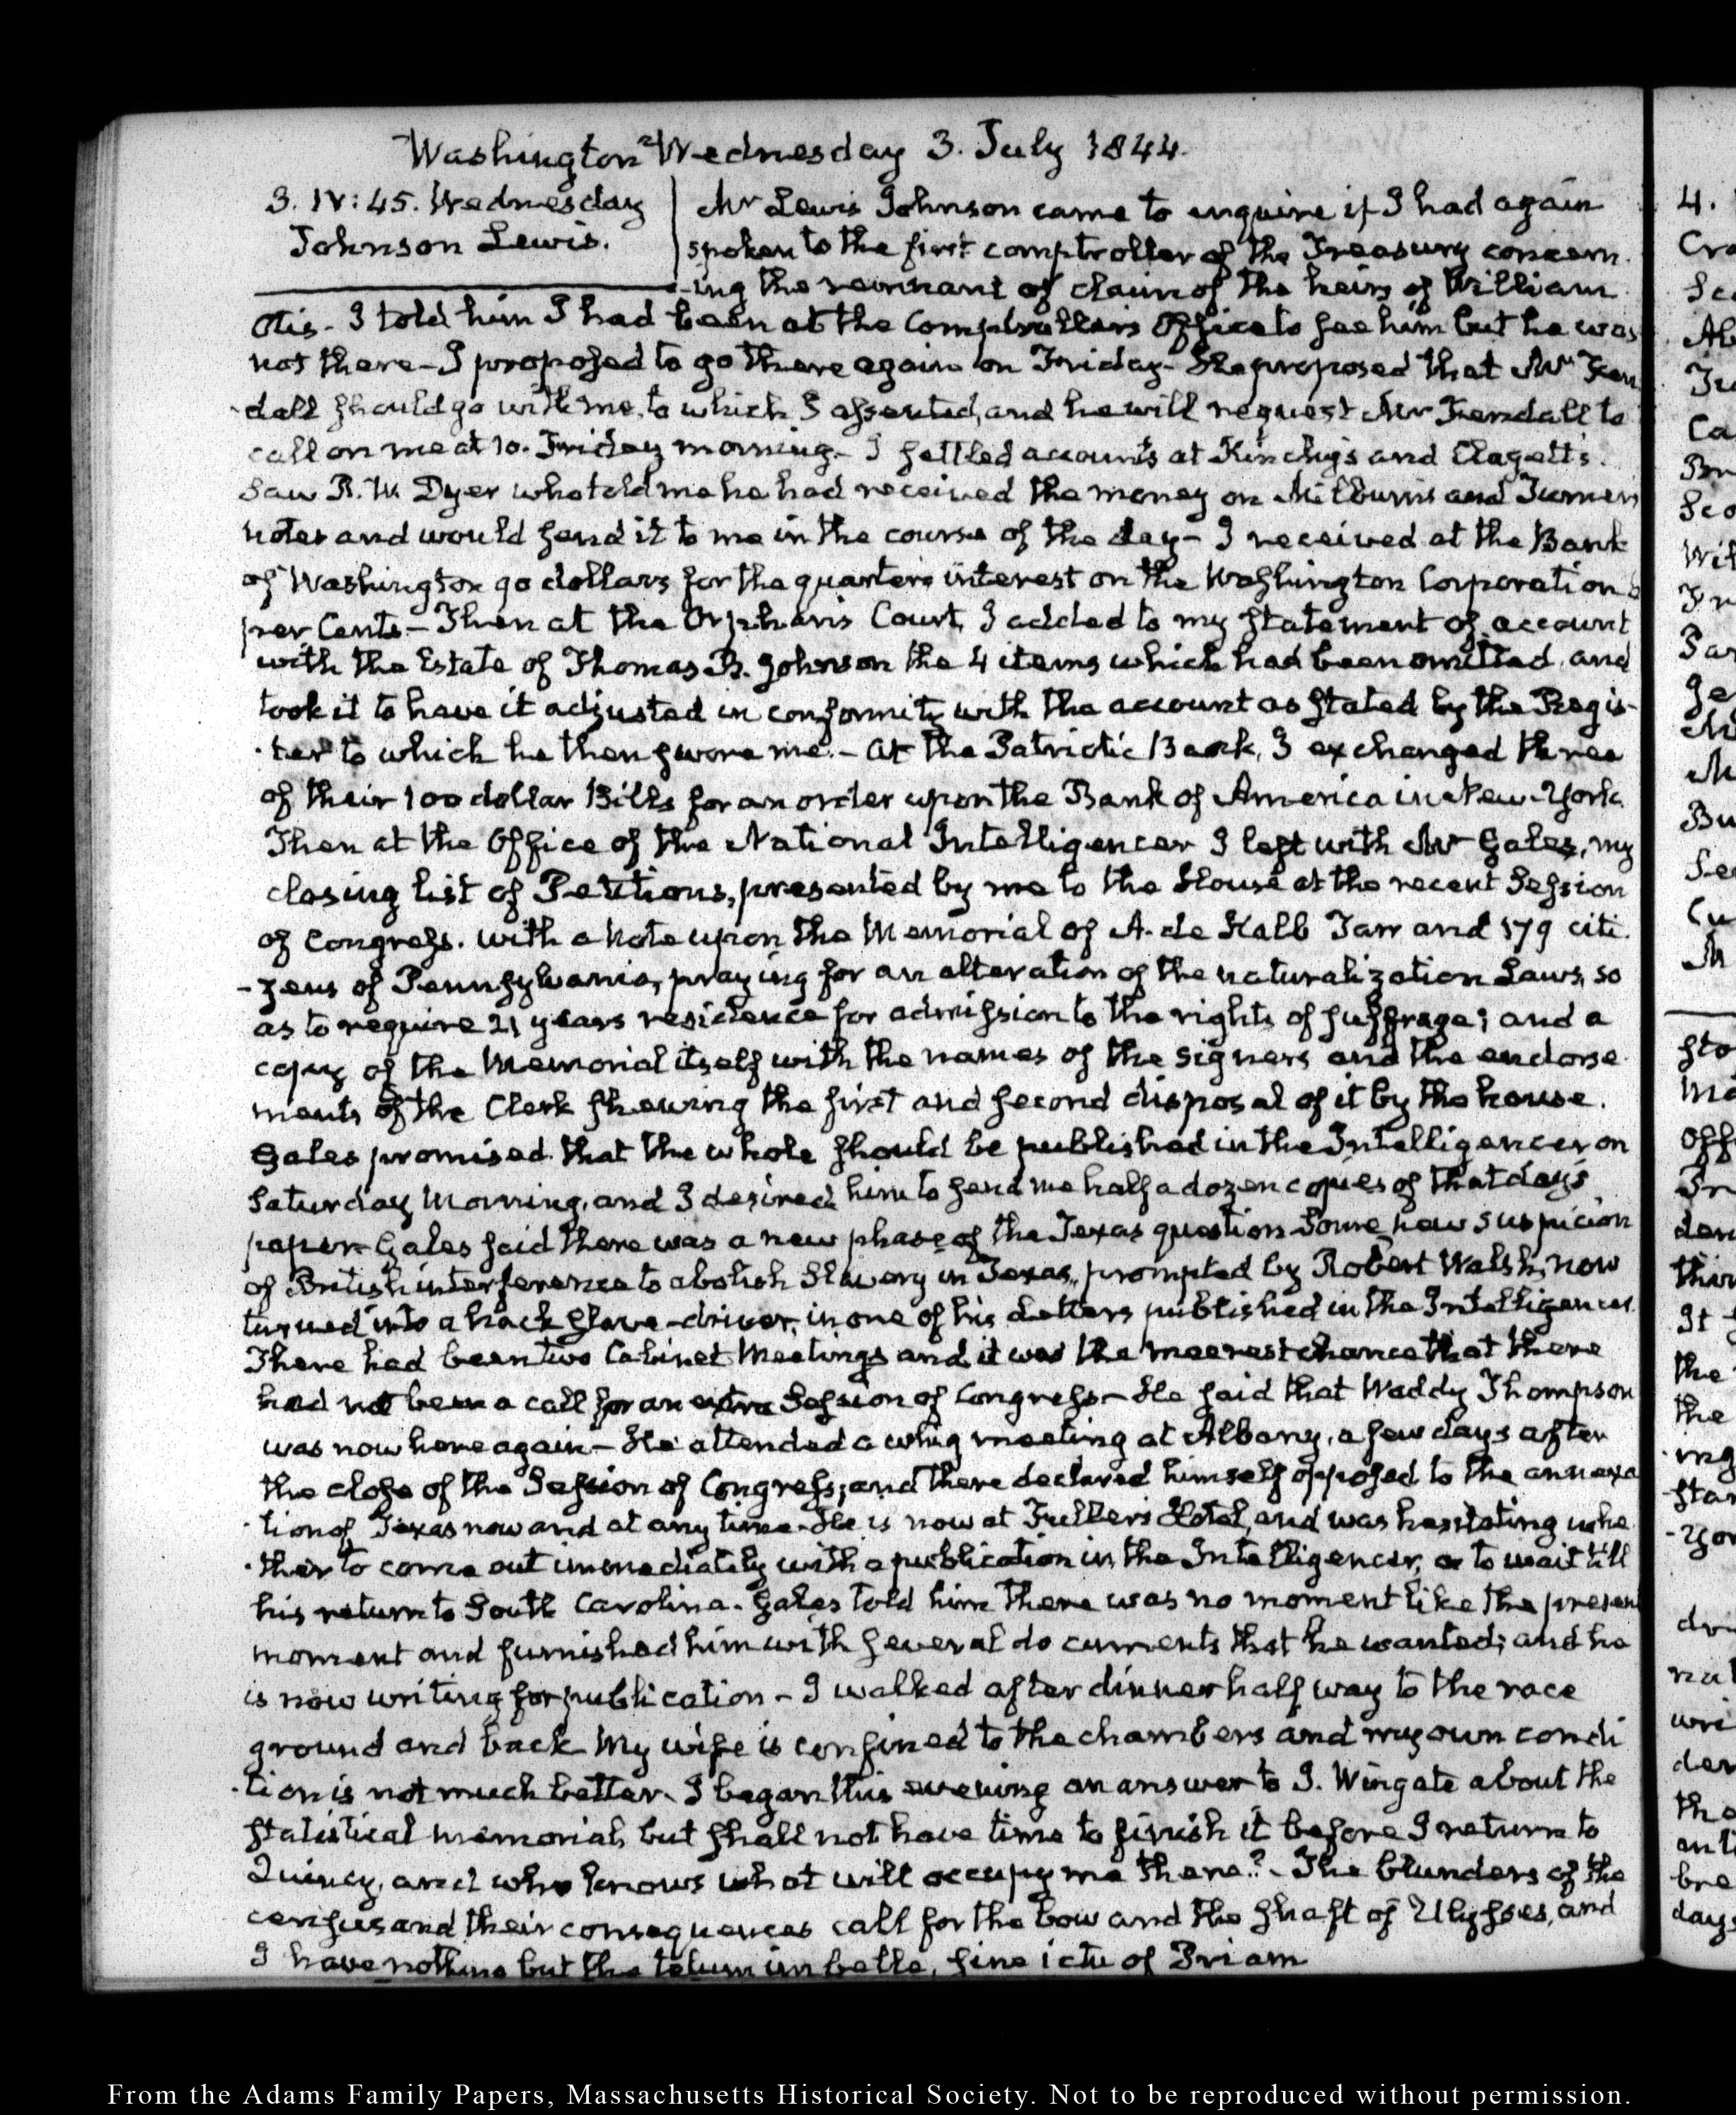 Washington Wednesday 3. July 1844.
3. IV: 45. Wednesday
Johnson Lewis.
Mr Lewis Johnson came to enquire if I had again
spoken to the first comptroller of the Treasury concern-
-ing the remnant of claim of the heirs of William
Otis- I told him I had been at the Comptroller's Office to see him but he was
not there- I proposed to go there again on Friday- He proposed that Mr Ken
-dall should go with me, to which I assented, and he will request Mr Kendall to
call on me at 10. Friday morning- I settled accounts at Kinchy's and Clagett's.
Saw R. W. Dyer who told me he had received the money on Milburn's and Turner's
notes and would send it to me in the course of the day- I received at the Bank
of Washington 90 dollars for the quarter's interest on the Washington Corporation 6
per Cents- Then at the Orphan's Court, I added to my statement of account
with the Estate of Thomas B. Johnson the 4 items which had been omitted, and
took it to have it adjusted in conformity with the account as stated by the Regis-
-ter to which he then swore me.- At the Patriotic Bank, I exchanged three
of their 100 dollar Bills for an order upon the Bank of America in New-York.
Then at the Office of the National Intelligencer I left with Mr Gales, my
closing list of Petitions, presented by me to the House at the recent Session
of Congress. with a Note upon the Memorial of A. de Kalb Tarr and 179 citi.
-zens of Pennsylvania, praying for an alteration of the naturalization Laws, so
as to require 21 years residence for admission to the rights of suffrage; and a
copy of the Memorial itself with the names of the signers and the endorse
ments of the Clerk shewing the first and second disposal of it by the house.
Gales promised that the whole should be published in the Intelligencer on
Saturday Morning, and I desired him to send me half a dozen copies of that day's
paper- Gales said there was a new phase of the Texas question Some new suspicion
of British interference to abolish Slavery in Texas, prompted by Robert Walsh, now
turned into a hack slave-driver, in one of his Letters published in the Intelligencer.
There had been two Cabinet Meetings and it was the meerest chance that there
had not been a call for an extra Session of Congress- He said that Waddy Thompson
was now here again- He attended a whig meeting at Albany, a few days after
the close of the Session of Congress; and there declared himself opposed to the annexa
-tion of Texas now and at any time- He is now at Fuller's Hotel, and was hesitating whe
-ther to come out immediately with a publication in the Intelligencer, or to wait till
his return to South Carolina. Gales told him there was no moment like the present
moment and furnished him with several documents that he wanted; and he
is now writing for publication- I walked after dinner half way to the race
ground and back My wife is confined to the chambers and my own condi
-tion is not much better. I began this evening an answer to J. Wingate about the
statistical memorial, but shall not have time to finish it before I return to
Quincy, and who knows what will occupy me there?- The blunders of the
census and their consequences call for the bow and the shaft of Ulysses, and
I have nothing but the telum imbelle, sine ictu of Priam
From the Adams Family Papers, Massachusetts Historical Society. Not to be reproduced without permission.